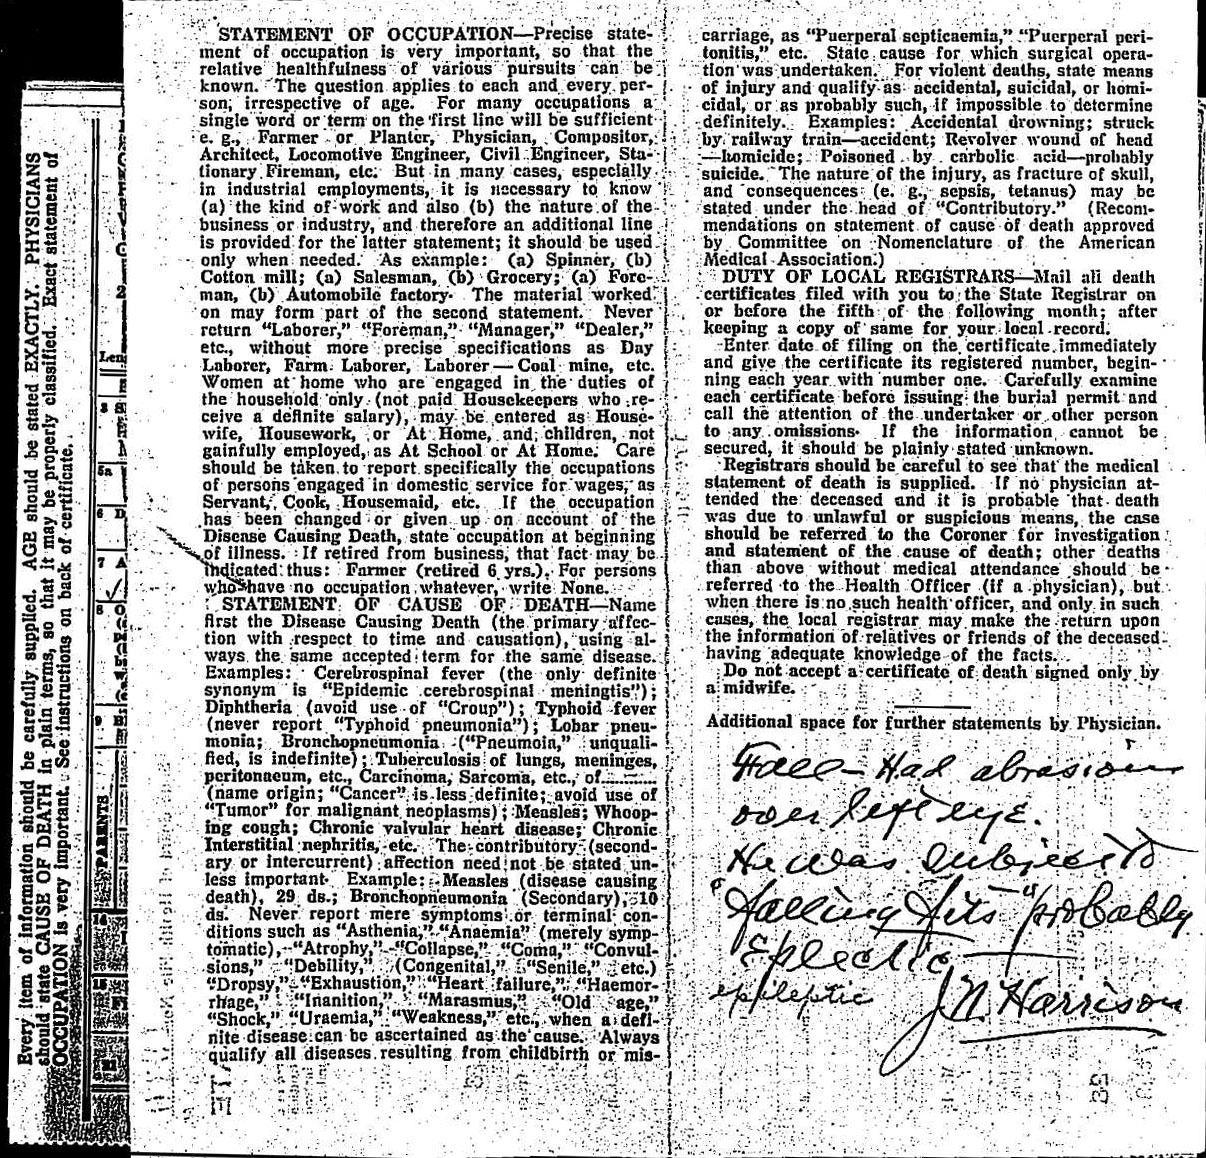 Every item of information should be carefully supplied. AGE should be stated EXACTLY. PHYSICIANS
should state CAUSE OF DEATH in plain terms, so that it may be properly classified. Exact statement of
OCCUPATION is very important. See instructions on back of certificate.
Len
3 S
5a
6 D
7 A
8 O
9 B
PARENTS
14
15
STATEMENT OF OCCUPATION—Precise state-
ment of occupation is very important, so that the
relative healthfulness of various pursuits can be
known. The question applies to each and every per-
son, irrespective of age. For many occupations a
single word or term on the first line will be sufficient
e. g., Farmer or Planter, Physician, Compositor,
Architect, Locomotive Engineer, Civil Engineer, Sta-
tionary Fireman, etc. But in many cases, especially
in industrial employments, it is necessary to know
(a) the kind of work and also (b) the nature of the
business or industry, and therefore an additional line
is provided for the latter statement; it should be used
only when needed. As example: (a) Spinner, (b)
Cotton mill; (a) Salesman, (b) Grocery; (a) Fore-
man, (b) Automobile factory. The material worked
on may form part of the second statement. Never
return "Laborer," "Foreman," "Manager," "Dealer,"
etc., without more precise specifications as Day
Laborer, Farm Laborer, Laborer—Coal mine, etc.
Women at home who are engaged in the duties of
the household only (not paid Housekeepers who re-
ceive a definite salary), may be entered as House-
wife, Housework, or At Home, and children, not
gainfully employed, as At School or At Home. Care
should be taken to report specifically the occupations
of persons engaged in domestic service for wages, as
Servant, Cook, Housemaid, etc. If the occupation
has been changed or given up on account of the
Disease Causing Death, state occupation at beginning
of illness. If retired from business, that fact may be
indicated thus: Farmer (retired 6 yrs.). For persons
who have no occupation whatever, write None.
STATEMENT OF CAUSE OF DEATH—Name
first the Disease Causing Death (the primary affec-
tion with respect to time and causation), using al-
ways the same accepted term for the same disease.
Examples: Cerebrospinal fever (the only definite
synonym is "Epidemic cerebrospinal meningtis");
Diphtheria (avoid use of "Croup"); Typhoid fever
(never report "Typhoid pneumonia"); Lobar pneu-
monia; Bronchopneumonia ("Pneumoia," unquali-
fied, is indefinite); Tuberculosis of lungs, meninges,
peritonaeum, etc., Carcinoma, Sarcoma, etc., of..........
(name origin; "Cancer" is less definite; avoid use of
"Tumor" for malignant neoplasms); Measles; Whoop-
ing cough; Chronic valvular heart disease; Chronic
Interstitial nephritis, etc. The contributory (second-
ary or intercurrent) affection need not be stated un-
less important. Example: Measles (disease causing
death), 29 ds.; Bronchopneumonia (Secondary), 10
ds. Never report mere symptoms or terminal con-
ditions such as "Asthenia," "Anaemia" (merely symp-
tomatic), "Atrophy," "Collapse," "Coma," "Convul-
sions," "Debility," (Congenital," "Senile," etc.)
"Dropsy," "Exhaustion," "Heart failure," "Haemor-
rhage," "Inanition," "Marasmus," "Old age,"
"Shock," "Uraemia," "Weakness," etc., when a defi-
nite disease can be ascertained as the cause. Always
qualify all diseases resulting from childbirth or mis-
carriage, as "Puerperal septicaemia," "Puerperal peri-
tonitis," etc. State cause for which surgical opera-
tion was undertaken. For violent deaths, state means
of injury and qualify as accidental, suicidal, or homi-
cidal, or as probably such, if impossible to determine
definitely. Examples: Accidental drowning; struck
by railway train—accident; Revolver wound of head
—homicide; Poisoned by carbolic acid—probably
suicide. The nature of the injury, as fracture of skull,
and consequences (e. g., sepsis, tetanus) may be
stated under the head of "Contributory." (Recom-
mendations on statement of cause of death approved
by Committee on Nomenclature of the American
Medical Association.)
DUTY OF LOCAL REGISTRARS—Mail all death
certificates filed with you to the State Registrar on
or before the fifth of the following month; after
keeping a copy of same for your local record.
Enter date of filing on the certificate immediately
and give the certificate its registered number, begin-
ning each year with number one. Carefully examine
each certificate before issuing the burial permit and
call the attention of the undertaker or other person
to any omissions. If the information cannot be
secured, it should be plainly stated unknown.
Registrars should be careful to see that the medical
statement of death is supplied. If no physician at-
tended the deceased and it is probable that death
was due to unlawful or suspicious means, the case
should be referred to the Coroner for investigation
and statement of the cause of death; other deaths
than above without medical attendance should be
referred to the Health Officer (if a physician), but
when there is no such health officer, and only in such
cases, the local registrar may make the return upon
the information of relatives or friends of the deceased
having adequate knowledge of the facts.
Do not accept a certificate of death signed only by
a midwife.
Additional space for further statements by Physician.
Fall - Had abrasion
over left eye.
He was subject to
"falling fits" probably
Eplectic
epileptic J N Harrison